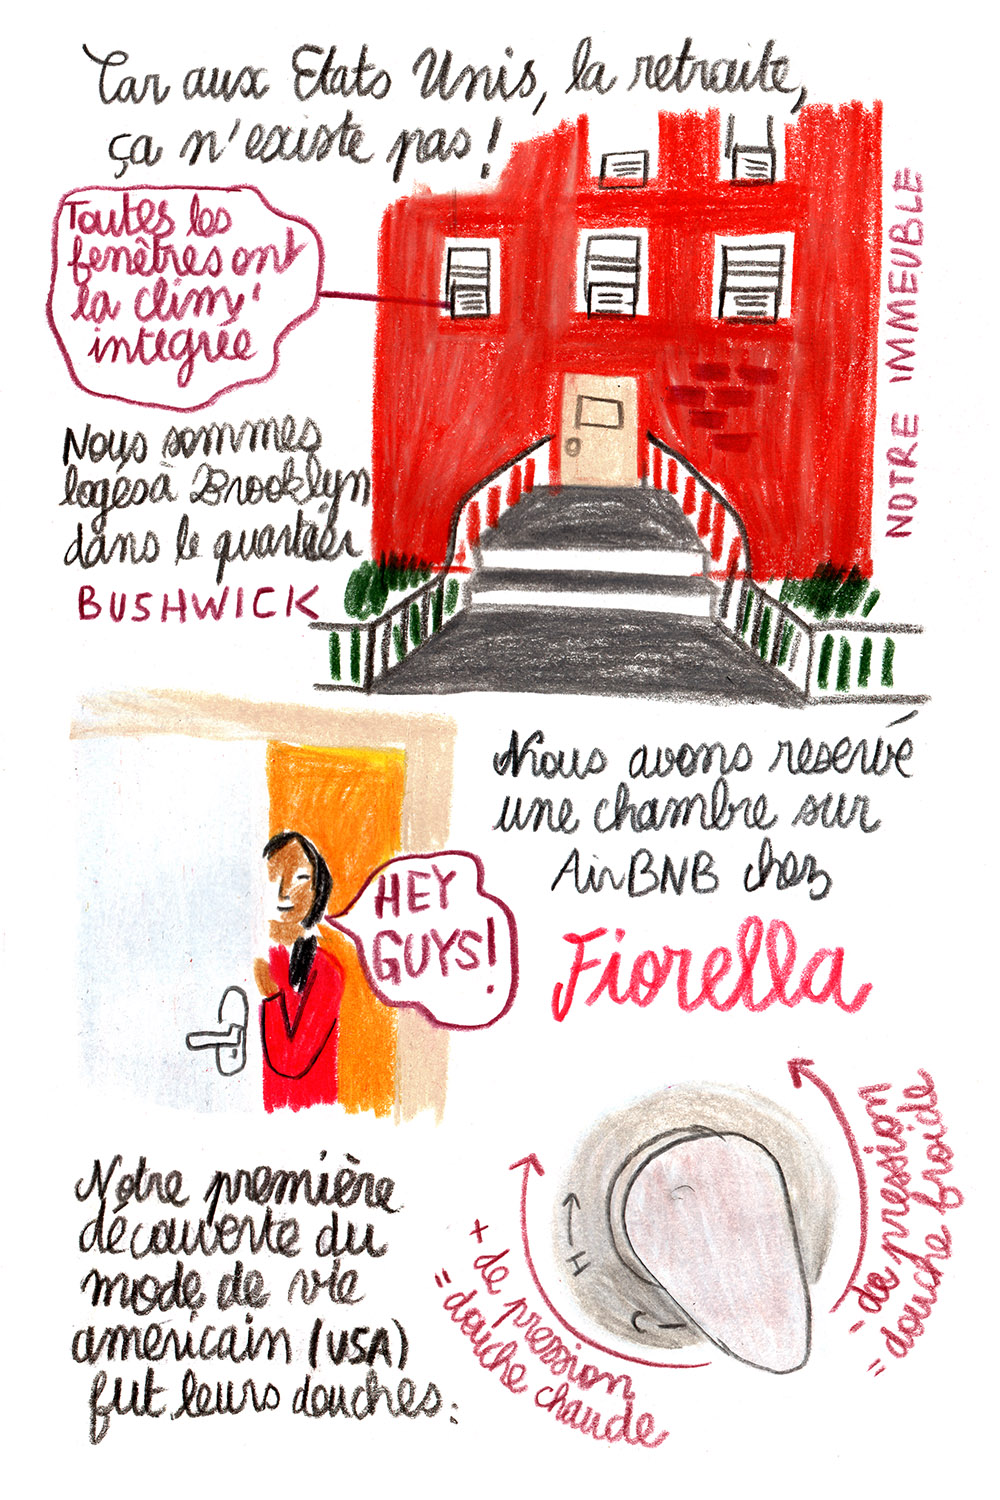 Car aux Etats Unis, la retraite,
ça n'existe pas !
Toutes les
fenêtres ont
la clim'
intégrée
NOTRE IMMEUBLE
Nous sommes
logés à Brooklyn
dans le quartier
BUSHWICK
Nous avons reservé
une chambre sur
AirBNB chez
Fiorella
HEY
GUYS!
Notre première
découverte du
mode de vie
américain (USA)
fut leurs douches.
H
C
+ de pression
= douche chaude
- de pression
= douche froide